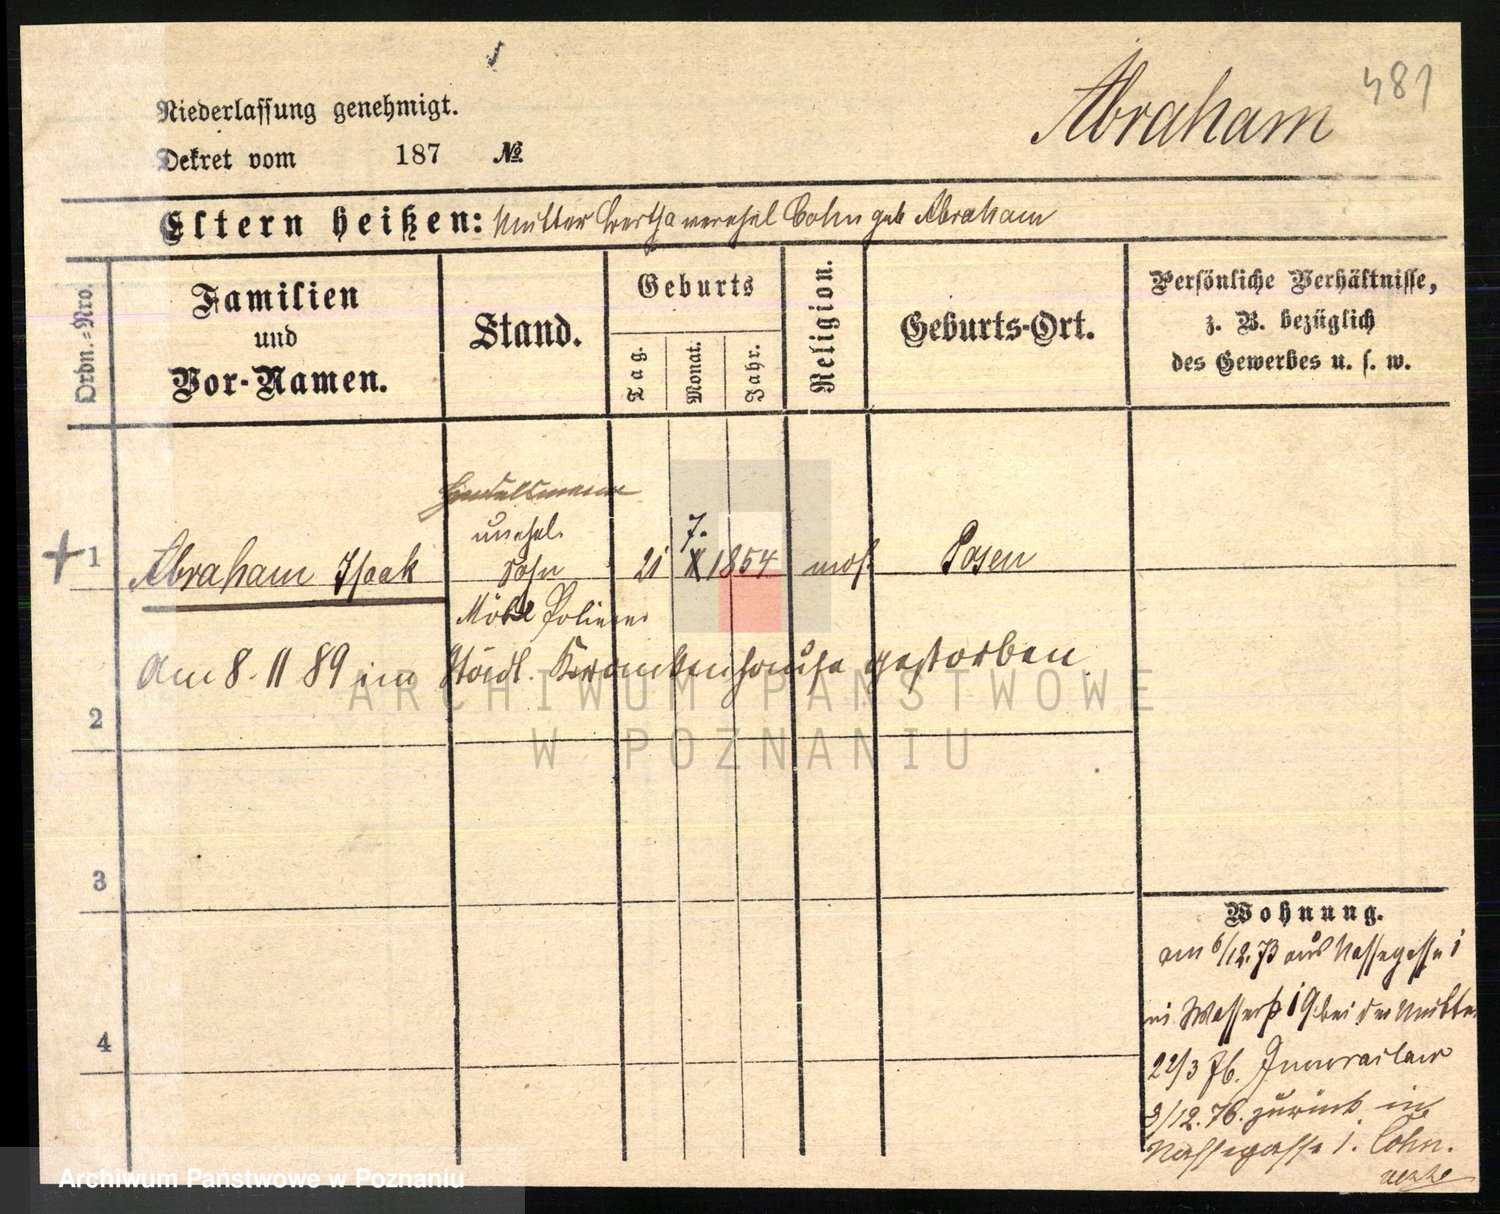 481
Abraham
Niederlassung genehmigt.
Dekret vom 187 №
Eltern heißen: Mutter Bertha verehel Cohn geb Abraham
Ordn.-Nro.
Familien
und
Vor-Namen.
Stand.
Geburts
Tag.
Monat.
Jahr.
Religion.
Geburts-Ort.
Persönliche Verhältnisse,
z. B. bezüglich
des Gewerbes u. s. w.
Handelsmann
unehel.
7.
1 Abraham Isaak Sohn 21 X 1854 mos. Posen
Möbel Polierer
am 8. 11 89 im Städt. Krankenhause gestorben
2
3
4
Wohnung.
am 6/12. 73 aus Nassegasse 1
in Wasserst 19 bei der Mutter
22/3 76. Inowraclaw
3/12. 76. zurück in
Nassegasse 1. Cohn.
ARCHIWUM PAŃSTWOWE
W POZNANIU
Archiwum Państwowe w Poznaniu